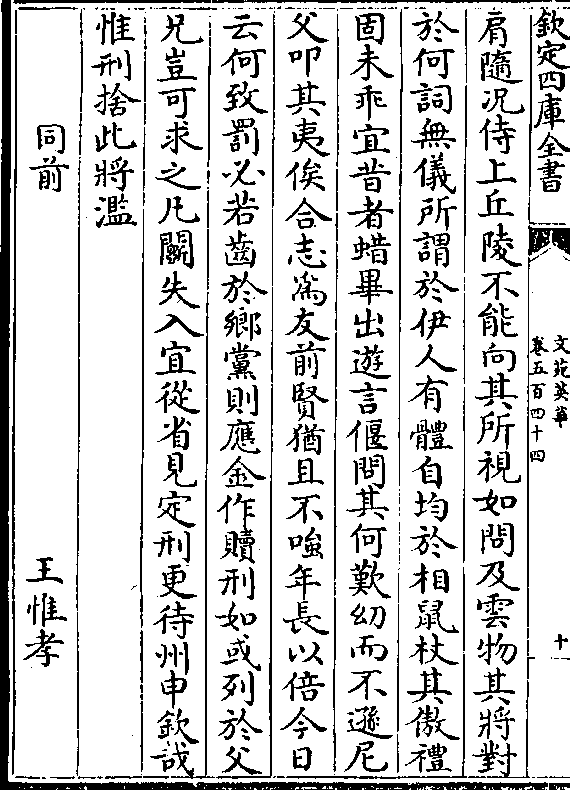 欽定四庫全書
文苑英華
卷五百四十四
十
肩隨况侍上丘陵不能向其所視如問及雲物其將對
於何詞無儀所謂於伊人有體自均於相鼠杖其傲禮
固未乖宜昔者蜡畢出遊言偃問其何歎幼而不遜尼
父叩其夷俟合志為友前賢猶且不嗤年長以倍今日
云何致罰必若齒於鄉黨則應金作贖刑如或列於父
兄豈可求之凡關失入宜從省見定刑更待州申欽哉
惟刑捨此將濫
同前
王惟孝